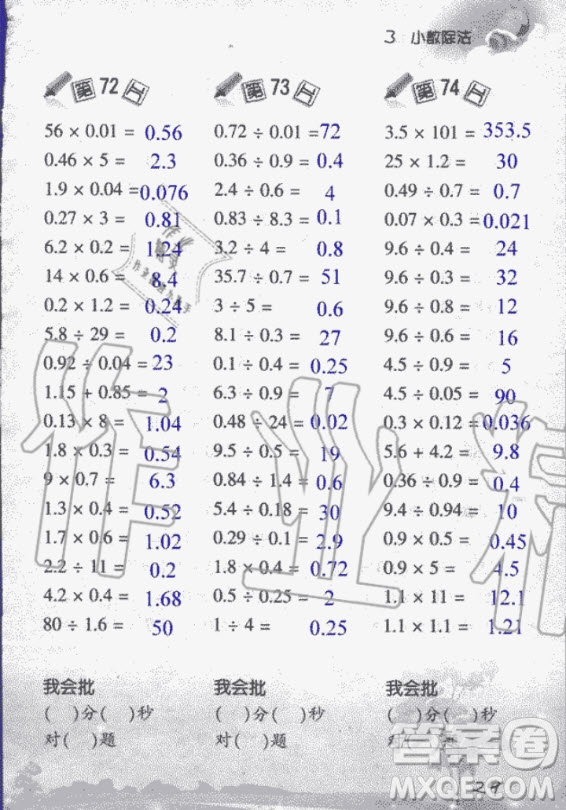 3 小数除法
第72天
56 × 0.01 = 0.56
0.46 × 5 = 2.3
1.9 × 0.04 = 0.076
0.27 × 3 = 0.81
6.2 × 0.2 = 1.24
14 × 0.6 = 8.4
0.2 × 1.2 = 0.24
5.8 ÷ 29 = 0.2
0.92 ÷ 0.04 = 23
1.15 + 0.85 = 2
0.13 × 8 = 1.04
1.8 × 0.3 = 0.54
9 × 0.7 = 6.3
1.3 × 0.4 = 0.52
1.7 × 0.6 = 1.02
2.2 ÷ 11 = 0.2
4.2 × 0.4 = 1.68
80 ÷ 1.6 = 50
我会批
( )分( )秒
对( )题
第73天
0.72 ÷ 0.01 = 72
0.36 ÷ 0.9 = 0.4
2.4 ÷ 0.6 = 4
0.83 ÷ 8.3 = 0.1
3.2 ÷ 4 = 0.8
35.7 ÷ 0.7 = 51
3 ÷ 5 = 0.6
8.1 ÷ 0.3 = 27
0.1 ÷ 0.4 = 0.25
6.3 ÷ 0.9 = 7
0.48 ÷ 24 = 0.02
9.5 ÷ 0.5 = 19
0.84 ÷ 1.4 = 0.6
5.4 ÷ 0.18 = 30
0.29 ÷ 0.1 = 2.9
1.8 × 0.4 = 0.72
0.5 ÷ 0.25 = 2
1 ÷ 4 = 0.25
我会批
( )分( )秒
对( )题
第74天
3.5 × 101 = 353.5
25 × 1.2 = 30
0.49 ÷ 0.7 = 0.7
0.07 × 0.3 = 0.021
9.6 ÷ 0.4 = 24
9.6 ÷ 0.3 = 32
9.6 ÷ 0.8 = 12
9.6 ÷ 0.6 = 16
4.5 ÷ 0.9 = 5
4.5 ÷ 0.05 = 90
0.3 × 0.12 = 0.036
5.6 + 4.2 = 9.8
0.36 ÷ 0.9 = 0.4
9.4 ÷ 0.94 = 10
0.9 × 0.5 = 0.45
0.9 × 5 = 4.5
1.1 × 11 = 12.1
1.1 × 1.1 = 1.21
我会批
( )分( )秒
对( )题
作业精
答案卷
MXQE.COM